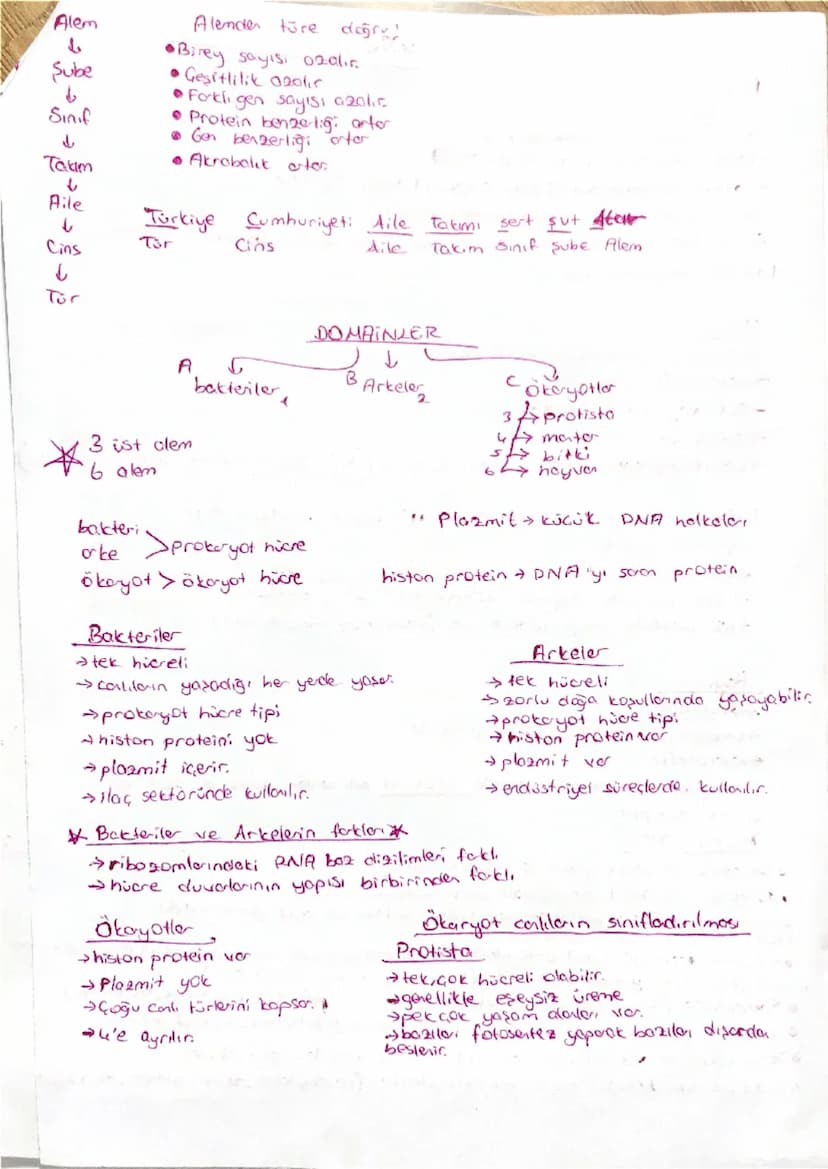 Alem
↓
Şube
↓
Sınıf
↓
Takım
↓
Aile
↓
Cins
↓
Tür
Alemden türe doğru!
• Birey sayısı azalır.
• Çeşitlilik azalır
• Farklı gen sayısı azalır.
• Protein benzerliği artar
• Gen benzerliği artar
• Akrabalık artar.
Türkiye Cumhuriyeti Aile Takımı sert şut
Tür Cins Aile Takım Sınıf Şube Alem
DOMAİNLER
A bakteriler 1
B Arkeler 2
C Ökaryotlar
3 → protista
4 → mantar
5 → bitki
6 → hayvan
3 üst alem
6 alem
bakteri
arke > prokaryot hücre
ökayot > ökaryot hücre
" Plazmit → küçük DNA halkaları
histon protein → DNA'yı saran protein.
Bakteriler
→ tek hücreli
→ canlıların yaşadığı her yerde yaşar.
→ prokaryot hücre tipi
→ histon proteini yok
→ plazmit içerir.
→ ilaç sektöründe kullanılır.
Arkeler
→ tek hücreli
→ zorlu doğa koşullarında yaşayabilir.
→ prokaryot hücre tipi
→ histon protein var
→ plazmit var
→ endüstriyel süreçlerde kullanılır.
* Bakteriler ve Arkelerin farkları *
→ ribozomlarındaki RNA baz dizilimleri farklı
→ hücre duvarlarının yapısı birbirinden farklı.
Ökayotlar
→ histon protein var
→ Plazmit yok
→ Çoğu canlı türlerini kapsar.
→ 4'e ayrılır.
Ökaryot canlıların sınıfladırılması
Protista
→ tek, çok hücreli olabilir.
→ genellikle eşeysiz üreme
→ pek çok yaşam alanları var.
→ bazıları fotosentez yaparak bazıları dışardan
beslenir.